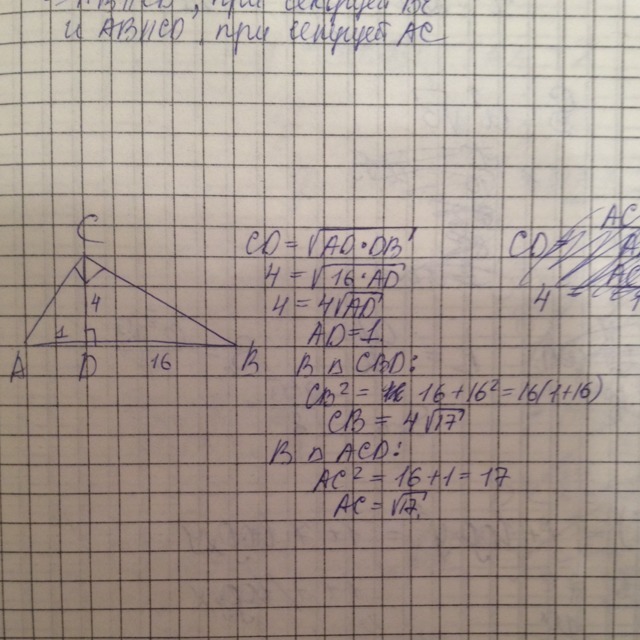 AB||CD, при секущей BC
и AB||CD, при секущей AC
C
4
1
A D 16 B
CD = √AD·DB
4 = √16·AD
4 = 4√AD
AD = 1
В △ CBD:
CB² = 16 + 16² = 16(1+16)
CB = 4√17
В △ ACD:
AC² = 16 + 1 = 17
AC = √17
AC
CD =
4 =